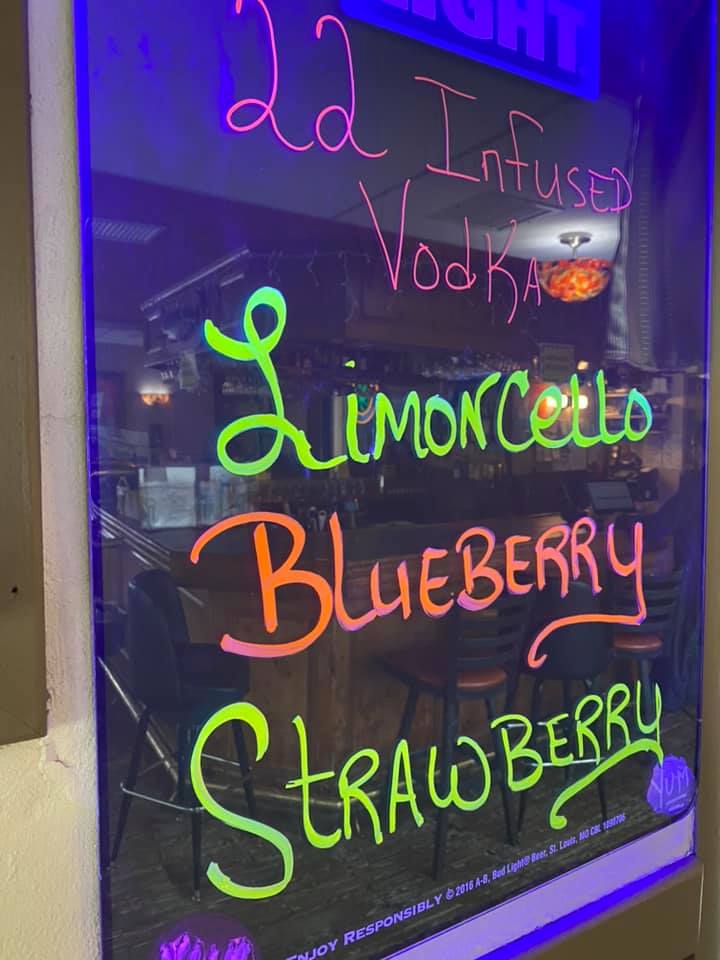 LIGHT
22 Infused
Vodka
LIMONCello
BLUEBERRY
STRAWBERRY
YUM
ENJOY RESPONSIBLY © 2016 A-B, Bud Light® Beer, St. Louis, MO